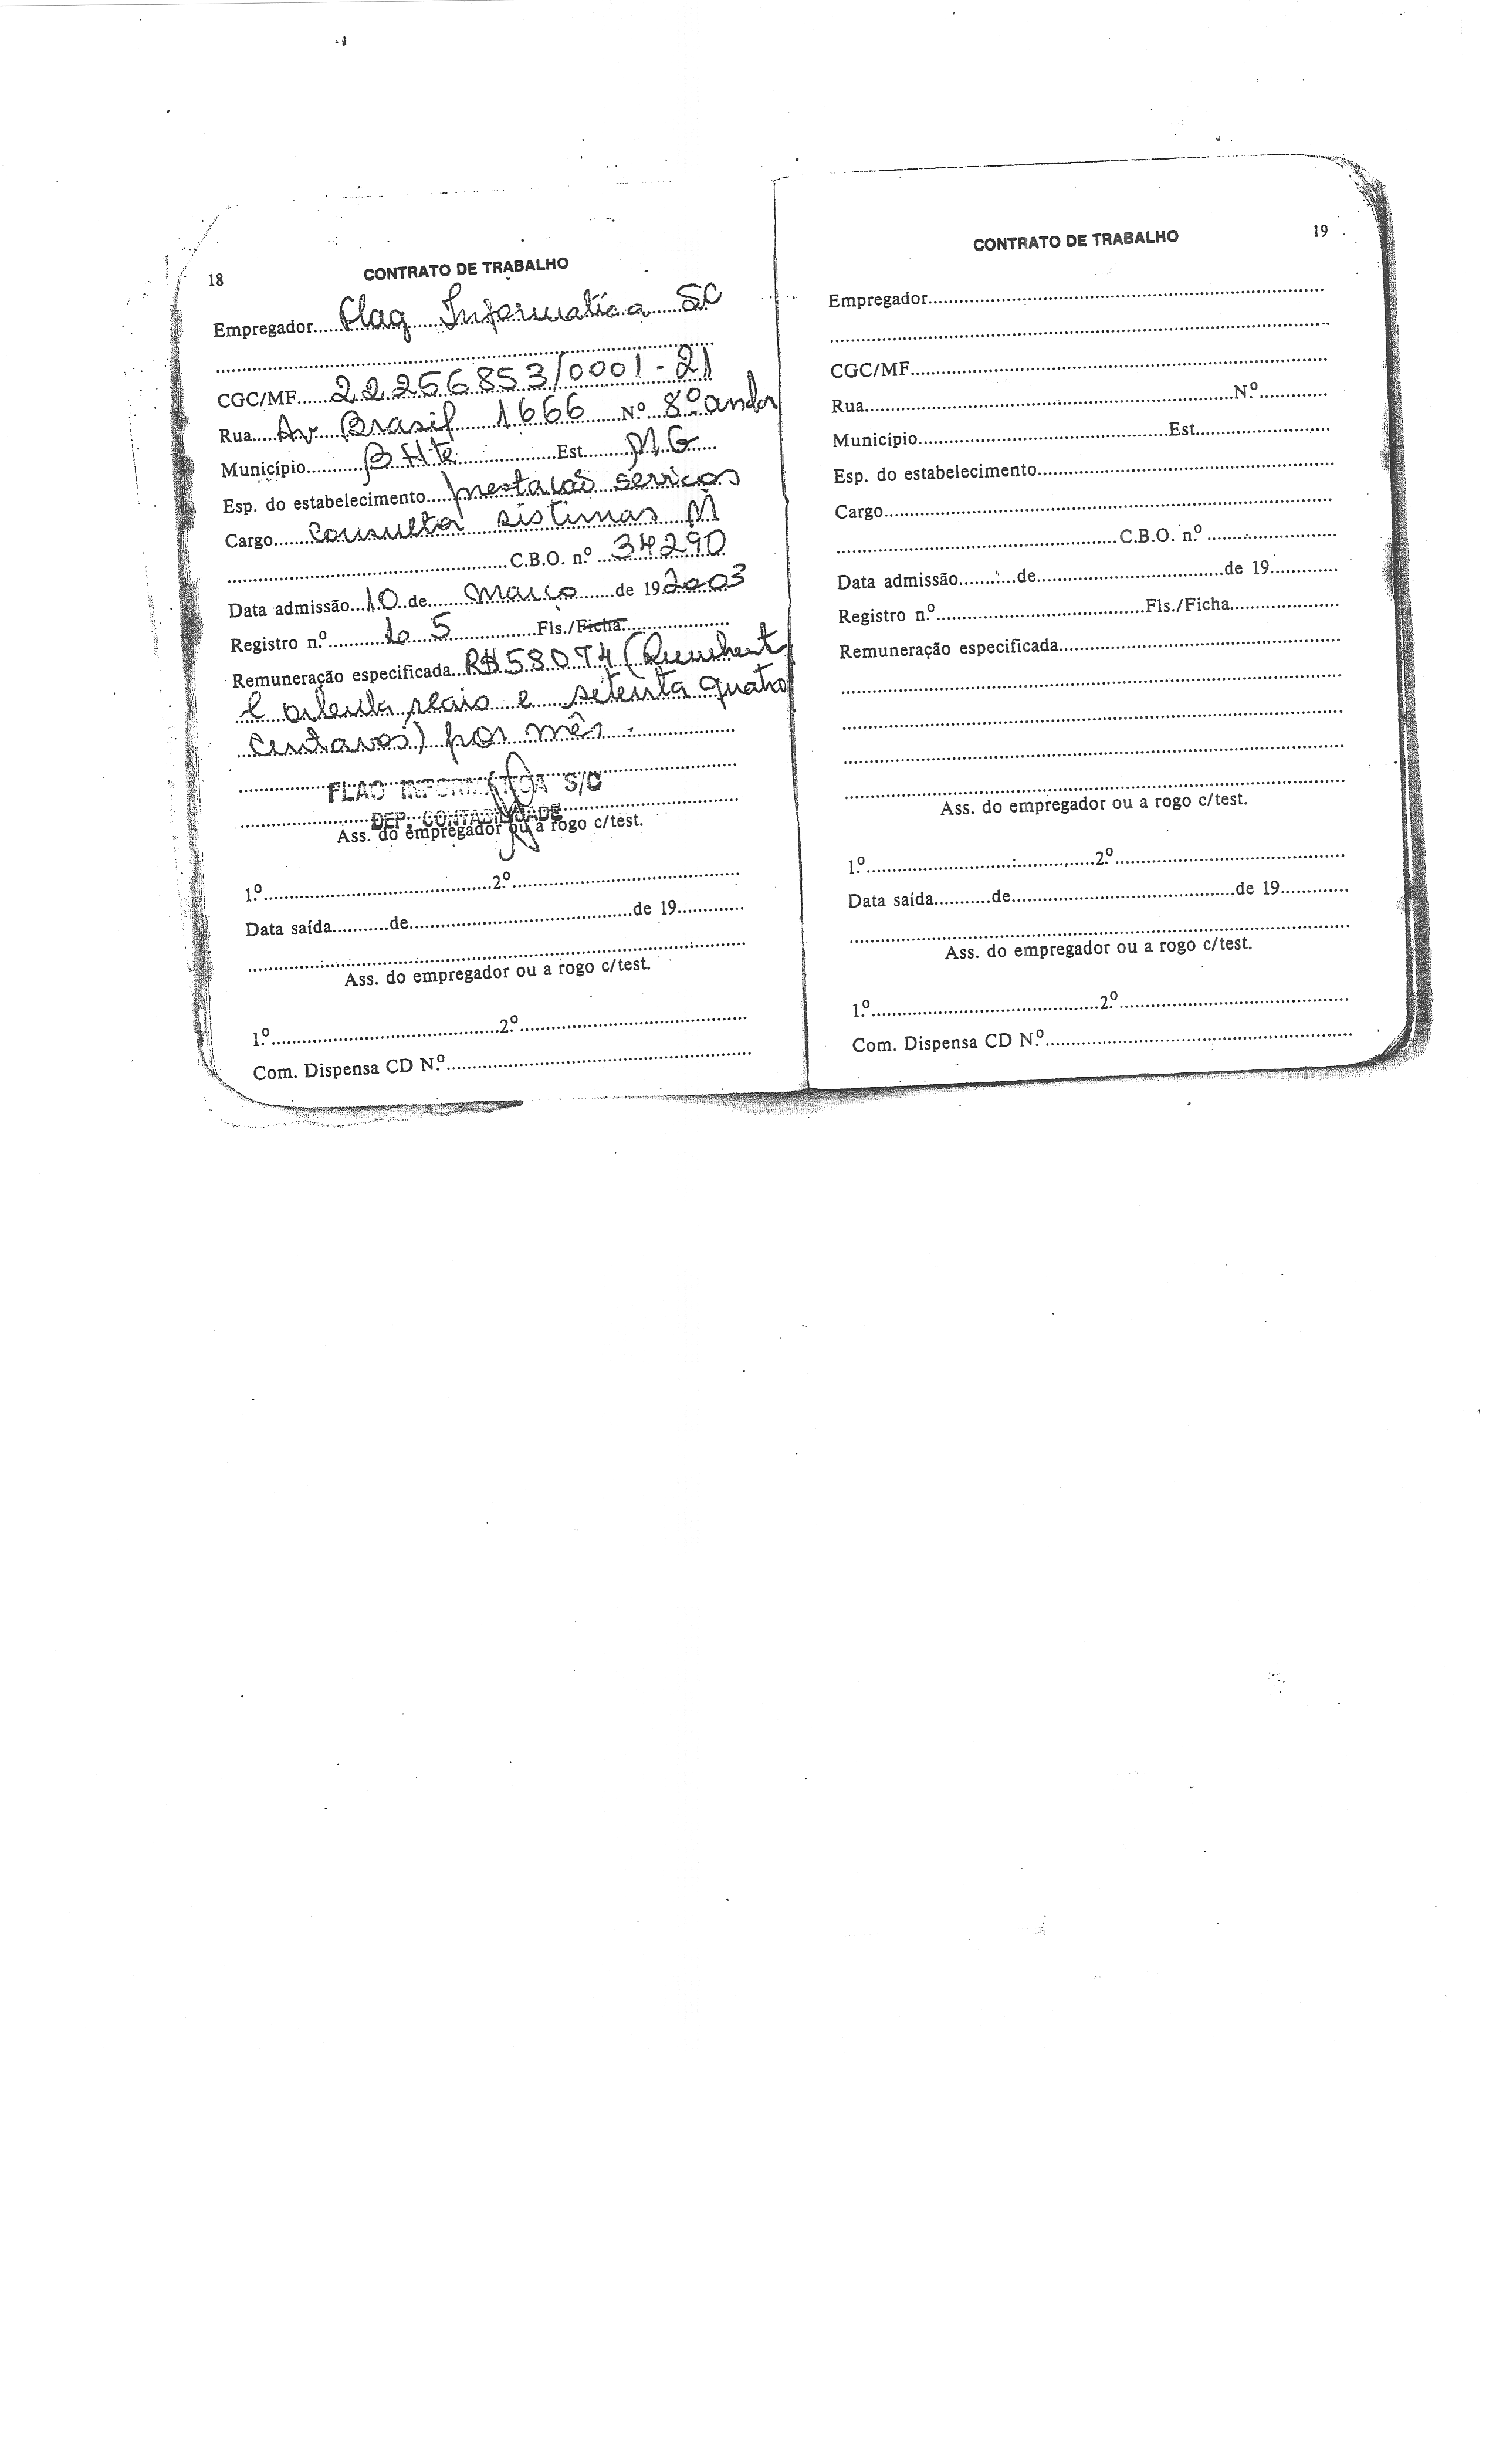 18
CONTRATO DE TRABALHO
Empregador.....Flag Informatica SC
CGC/MF......22256853/0001-21
Rua....Av Brasil 1666 N.º 8º andar
Município...........BHte...............Est........MG.....
Esp. do estabelecimento....prestacao servicos
Cargo.......Consultor sistemas M
C.B.O. n.º ...34290
Data admissão...10..de.......Março.......de 192003
Registro n.º...........105................Fls./Ficha.....................
Remuneração especificada...R$58074 (Quinhent
e oitenta reais e setenta quatro
centavos) por mês.
FLAG INFORMÁTICA S/C
DEP. CONTABILIDADE
Ass. do empregador ou a rogo c/test.
1.º............................................2.º............................................
Data saída...........de...........................................de 19.............
Ass. do empregador ou a rogo c/test.
1.º............................................2.º............................................
Com. Dispensa CD N.º............................................................
CONTRATO DE TRABALHO
19
Empregador..............................................................................
CGC/MF..................................................................................
Rua........................................................................N.º.............
Município.................................................Est..........................
Esp. do estabelecimento..........................................................
Cargo........................................................................................
.......................................................C.B.O. n.º .........................
Data admissão...........de.....................................de 19.............
Registro n.º.........................................Fls./Ficha.....................
Remuneração especificada.......................................................
Ass. do empregador ou a rogo c/test.
1.º............................................2.º............................................
Data saída...........de...........................................de 19.............
Ass. do empregador ou a rogo c/test.
1.º............................................2.º............................................
Com. Dispensa CD N.º............................................................